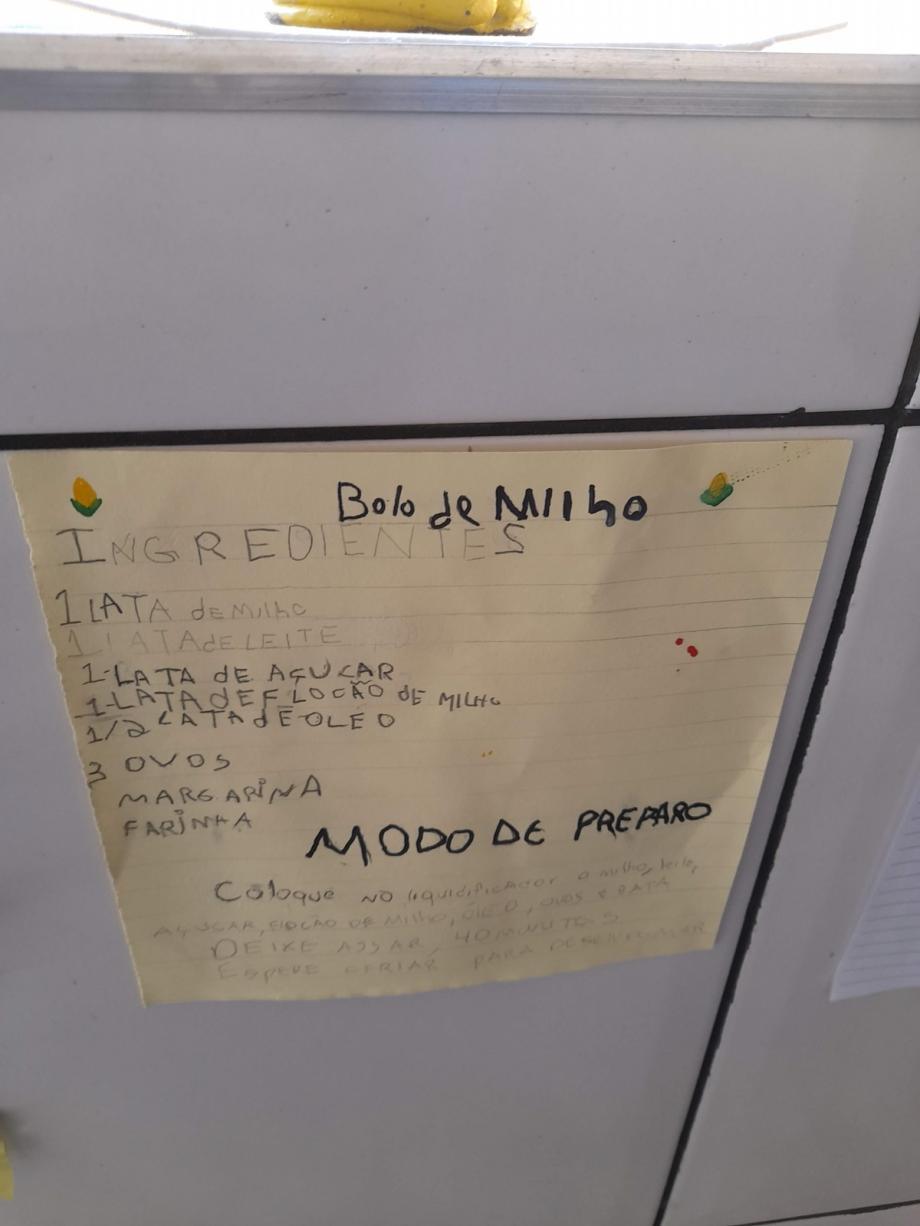 Bolo de Milho
INGREDIENTES
1 LATA de Milho
1 LATA dE LEITE
1-LATA dE AÇUCAR
1-LATA dE FLOCÃO dE MILHO
1/2 LATA dE OLEO
3 OVOS
MARGARINA
FARINHA
MODO DE PREPARO
Coloque NO liquidificador o milho, leite,
AÇUCAR, FLOCÃO DE MILHO, ÓLEO, OVOS E BATA
DEIXE ASSAR, 40 MINUTOS
ESPERE ESFRIAR PARA DESENFORMAR